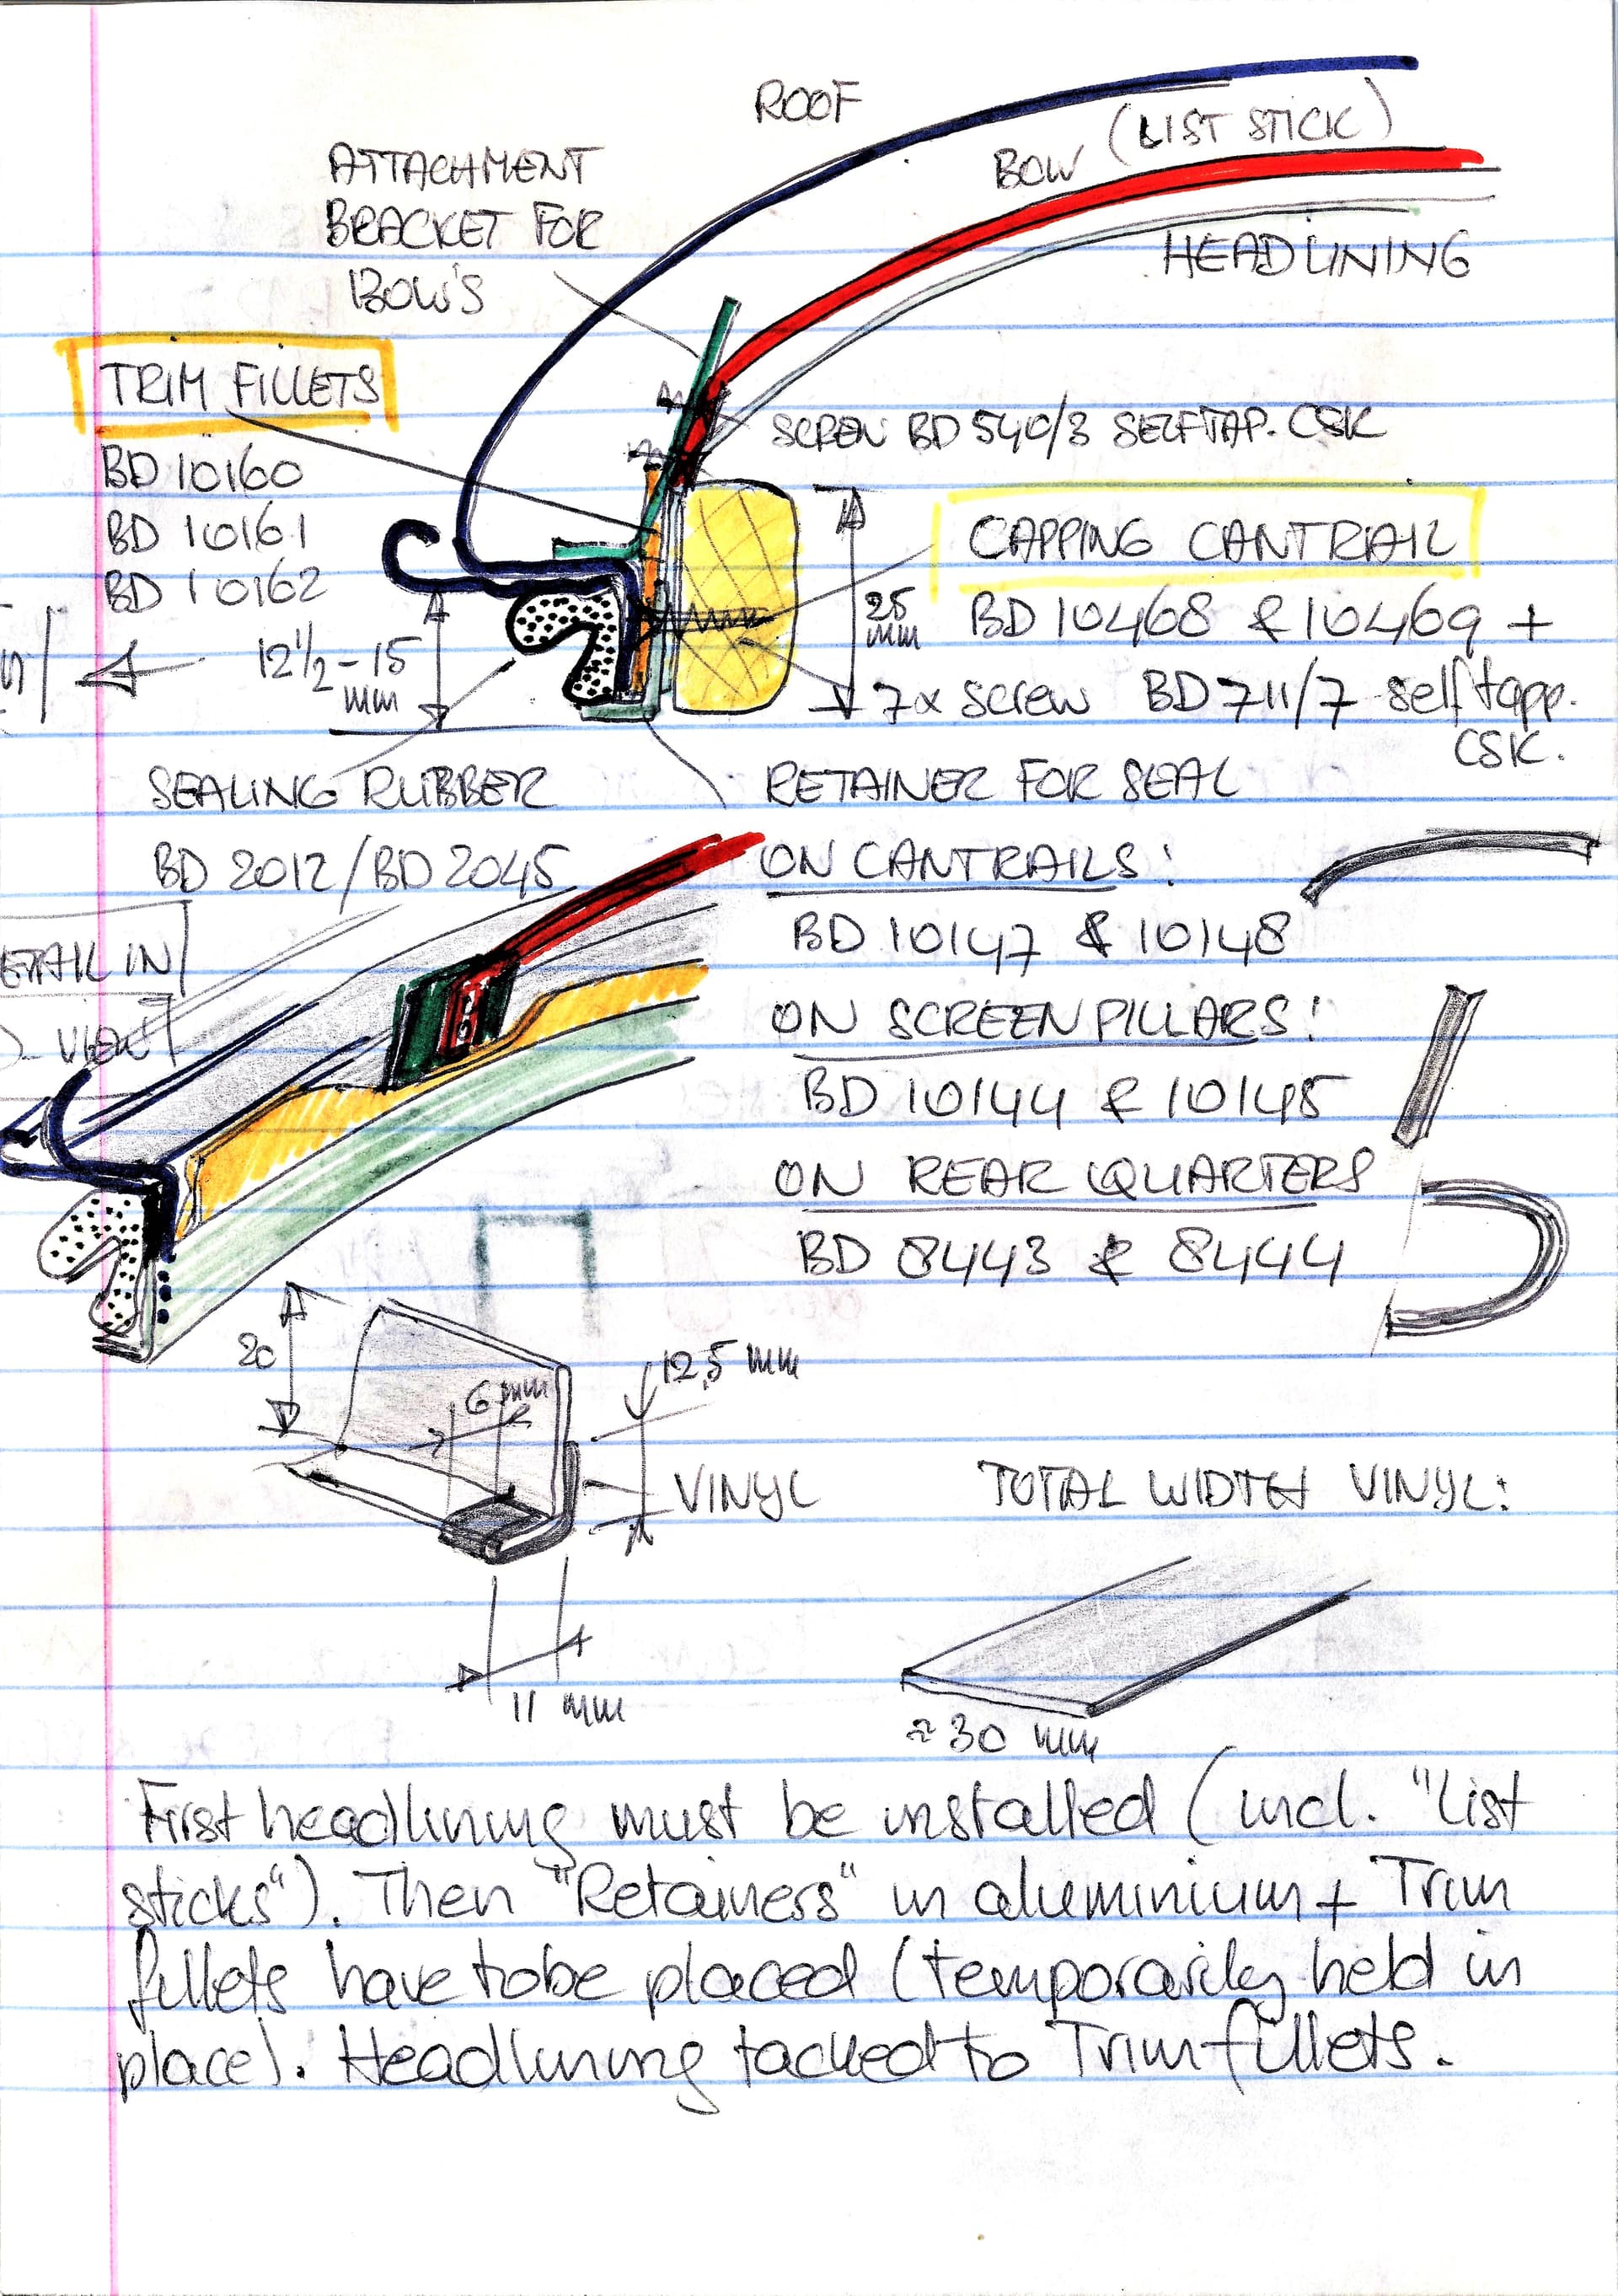 ROOF
(LIST STICK)
BOW
ATTACHMENT
BRACKET FOR
BOW'S
HEADLINING
TRIM FILLETS
BD 10160
BD 10161
BD 10162
SCREW BD 540/3 SELFTAP. CSK
CAPPING CANTRAIL
BD 10468 & 10469 +
7x screw BD 711/7 self tapp.
CSK.
25
mm
12 1/2 - 15
mm
SEALING RUBBER
BD 2012/BD 2045
RETAINER FOR SEAL
ON CANTRAILS:
BD 10147 & 10148
ETAIL IN
VIEW
ON SCREENPILLARS:
BD 10144 & 10145
ON REAR QUARTERS
BD 8443 & 8444
20
6 mm
12,5 mm
VINYL
11 mm
TOTAL WIDTH VINYL:
≈ 30 mm
First headlining must be installed (incl. "List
sticks"). Then "Retainers" in aluminium + Trim
fillets have to be placed (temporarily held in
place). Headlining tacked to Trimfillets.